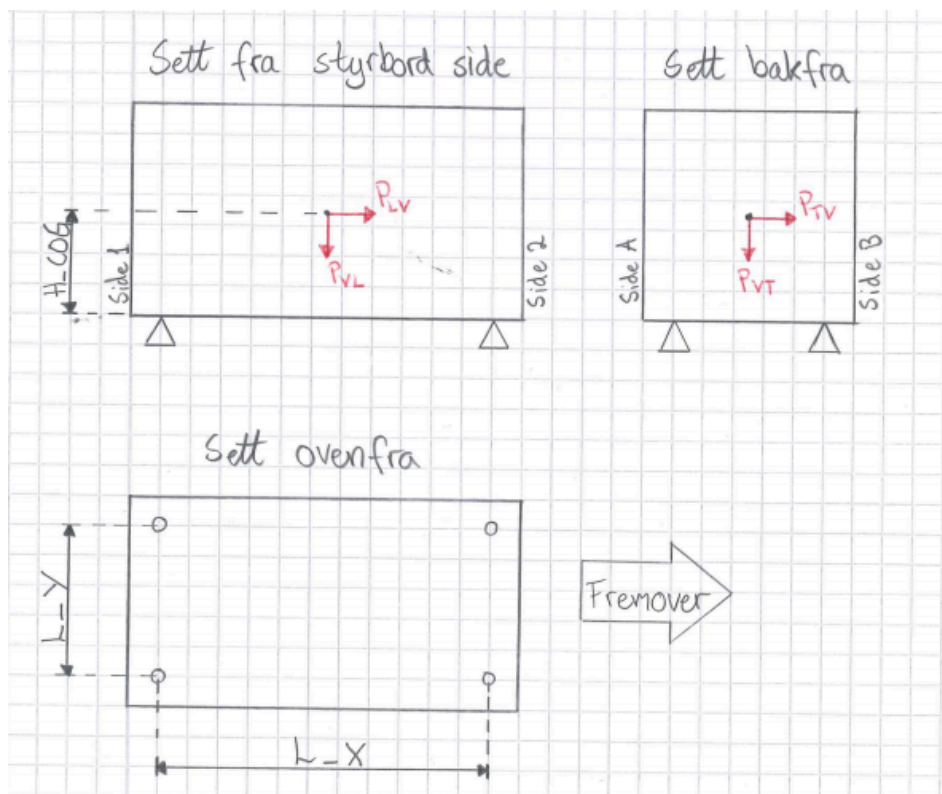 Sett fra styrbord side
Sett bakfra
H-COG
Side 1
P_LV
P_VL
Side 2
Side A
P_TV
P_VT
Side B
Sett ovenfra
L-Y
Fremover
L-X